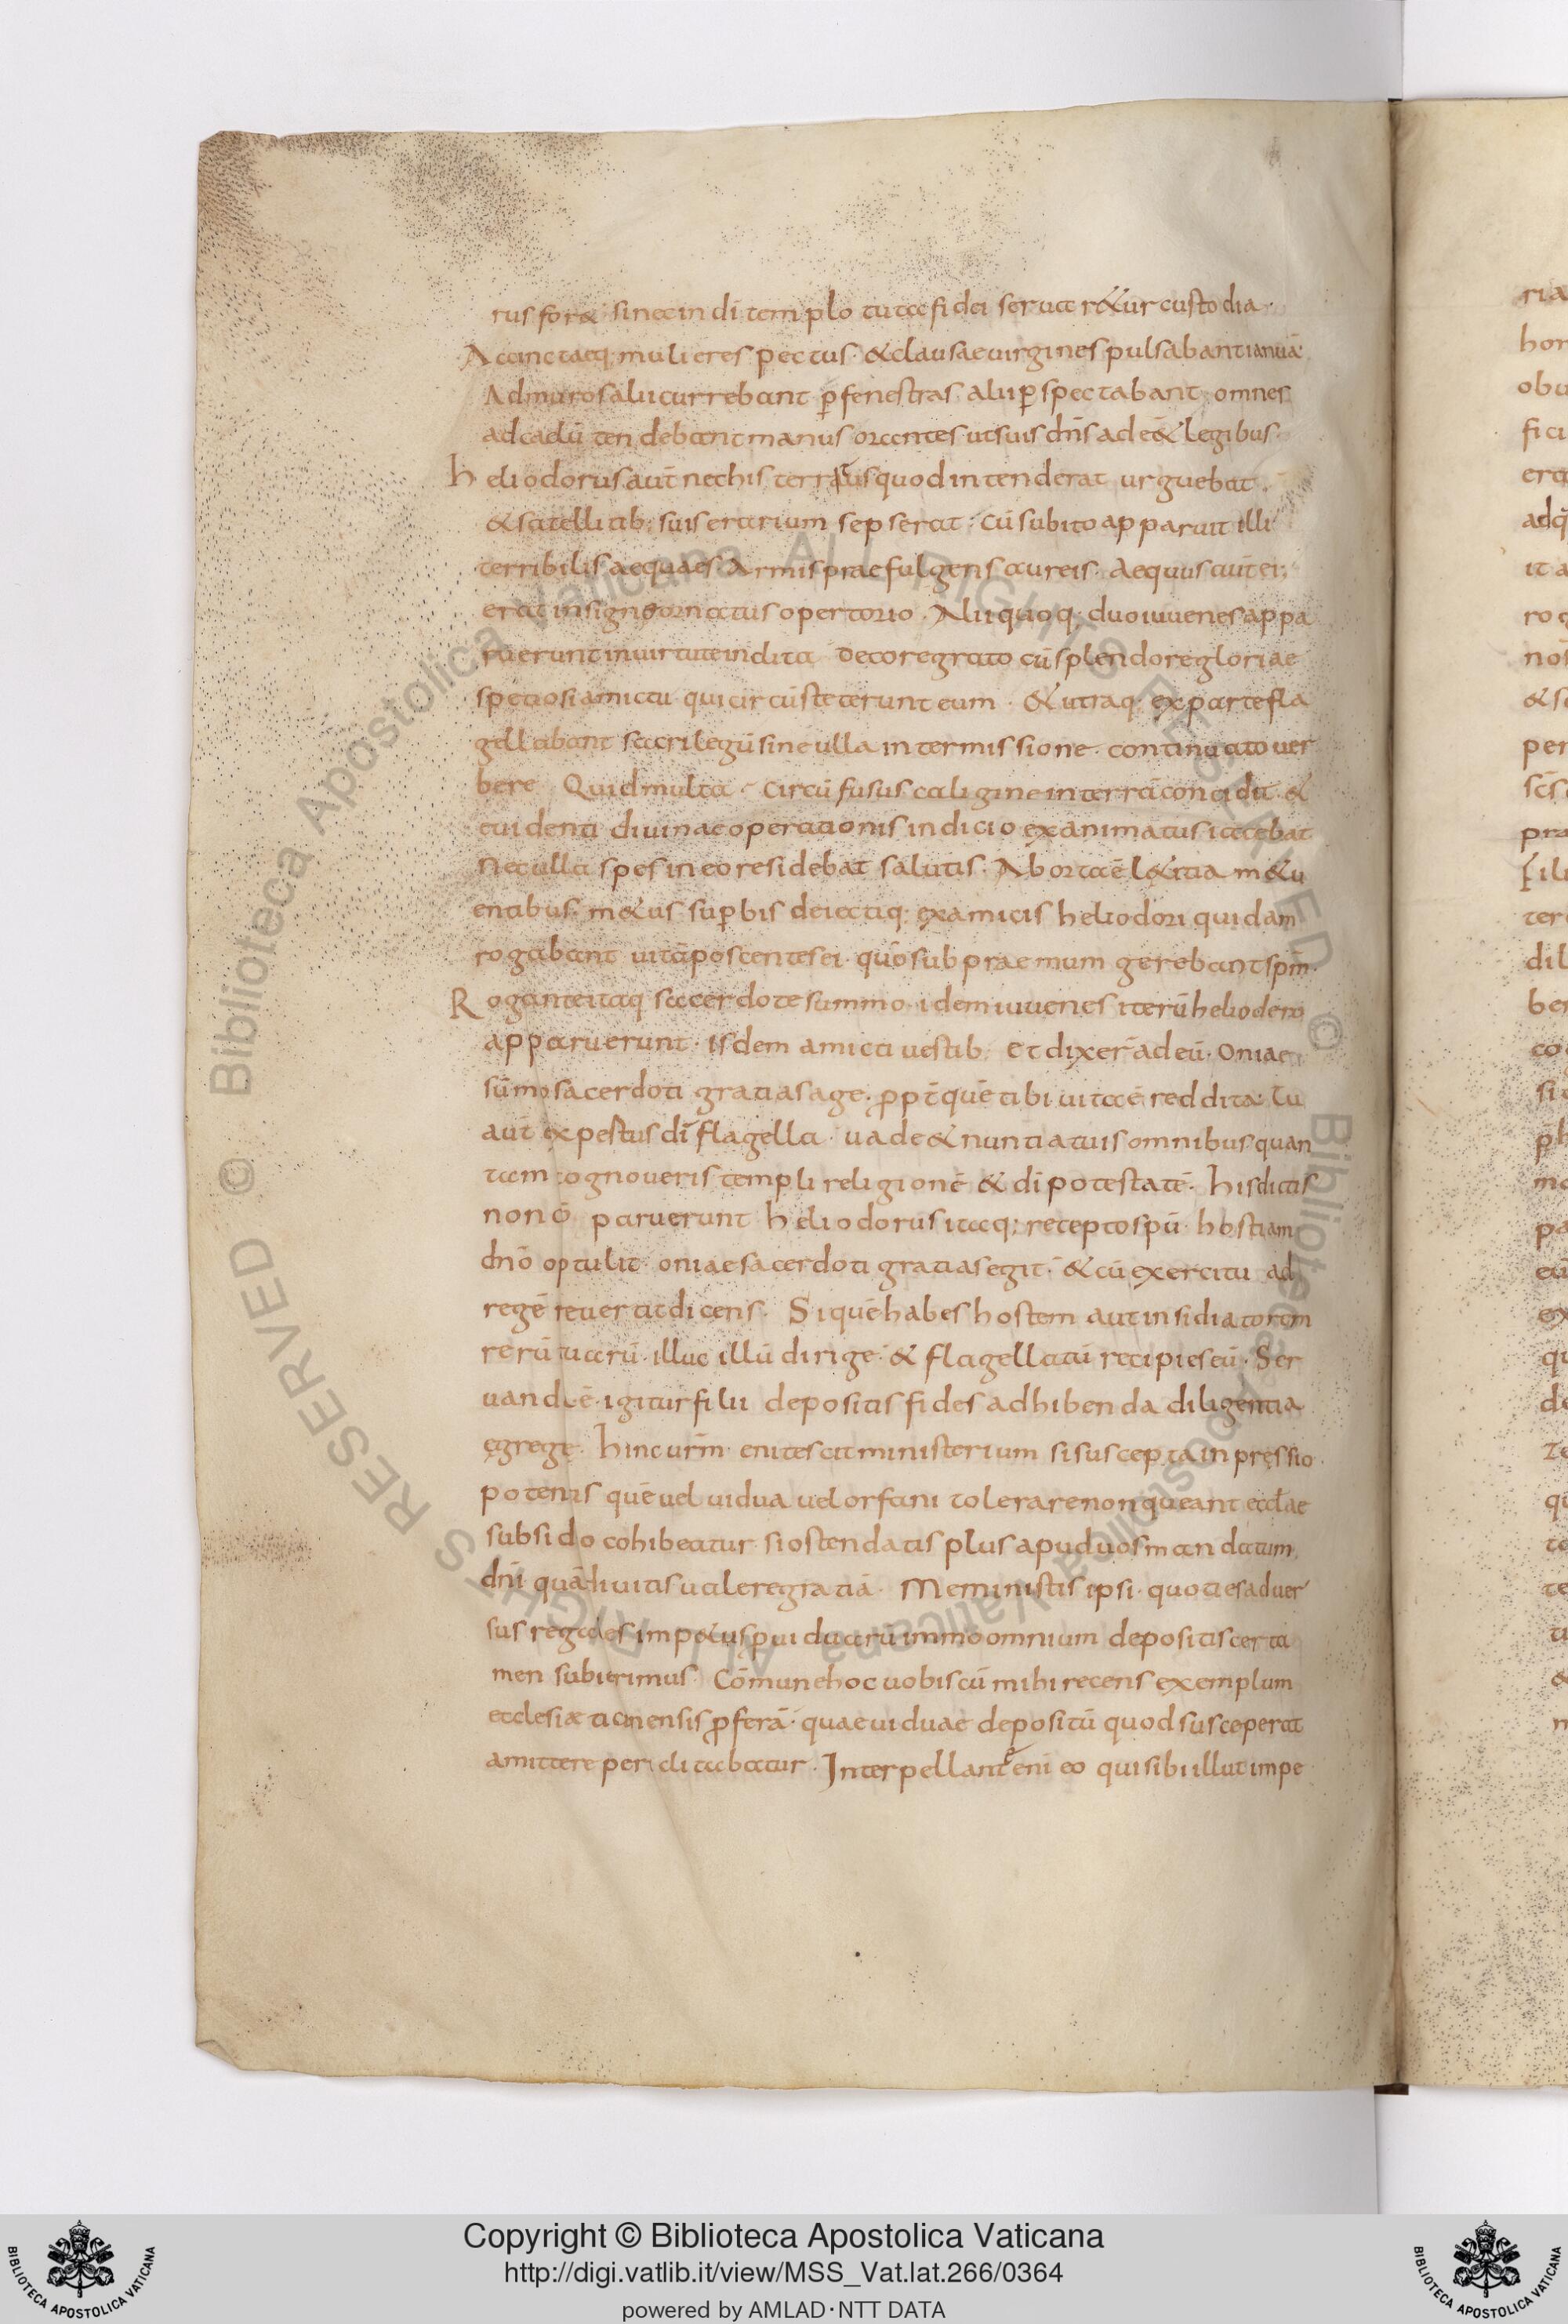 rus for& si nec in dī templo tutae fidei seruar&ur custodia·
Accinctaeq; mulieres pectus· & clausae uirgines pulsabant ianuā·
Ad muros alii currebant p̄ fenestras alii p̄spectabant omnes
ad caelū tendebant manus orantes ut suis dn̄s ad eēt legibus·
heliodorus aut̄ nec his territus quod intenderat urguebat
& satellitib; suis erarium sepserat· Cū subito apparuit illi
terribilis aequaes Armis praefulgens aureis Aequus aut̄ ei;
erat insigni ornatus opertorio· Alii quoq; duo iuuenes appa
ruerunt in uirtute indita decore grato cū splendore gloriae
speciosi amictu qui circūsteterunt eum· & utraq; ex parte fla
gellabant sacrilegū sine ulla intermissione· continuato uer
bere Quid multa· Circū fusus caligine in terrā concidit· &
euidenti diuinae operationis indicio exanimatus iacebat
Nec ulla spes in eo residebat salutis· Aborta ē l&itia m&u
entibus· m&us sup̄bis deiectiq; ex amicis heliodori quidam
rogabant uitā poscentes ei· quō subpraemum gerebant spm̄·
Rogante itaq; sacerdote summo· idem iuuenes iterū heliodoro
apparuerunt· isdem amicti uestib; Et dixer̄ ad eū· Oniae
sūmo sacerdoti gratias age· ppt̄ quē tibi uita ē reddita· Tu
aut̄ expertus dī flagella· uade & nuntia tuis omnibus quan
tam cognoueris templi religionē & dī potestatē· his dictis
non ō paruerunt heliodorus itaq; recepto spū hostiam
dn̄o optulit oniae sacerdoti gratias egit· & cū exercitu ad
regē reuertit dicens· Si quē habes hostem aut insidiatorem
rerū tuarū· illuc illū dirige· & flagellatū recipies eū· Ser
uanda ē· igitur filii depositis fides adhibenda diligentia
egregę· hinc urm̄ enitescit ministerium si suscepta inpressio
potentis quē uel uidua uel orfani tolerare non queant eccłae
subsido cohibeatur si ostendatis plus apud uos mandatum
dn̄i quā diuitis ualere gratiā· Meministis ipsi· quoties aduer
sus regales impetus p uiduarū immo omnium depositis certa
men subierimus· Cōmune hoc uobis cū mihi recens exemplum
ecclesiæ ticinensis pferā· quae uiduae depositū quod susceperat
amittere periclitabatur· Interpellante enī eo qui sibi illut impe
Copyright © Biblioteca Apostolica Vaticana
http://digi.vatlib.it/view/MSS_Vat.lat.266/0364
powered by AMLAD·NTT DATA